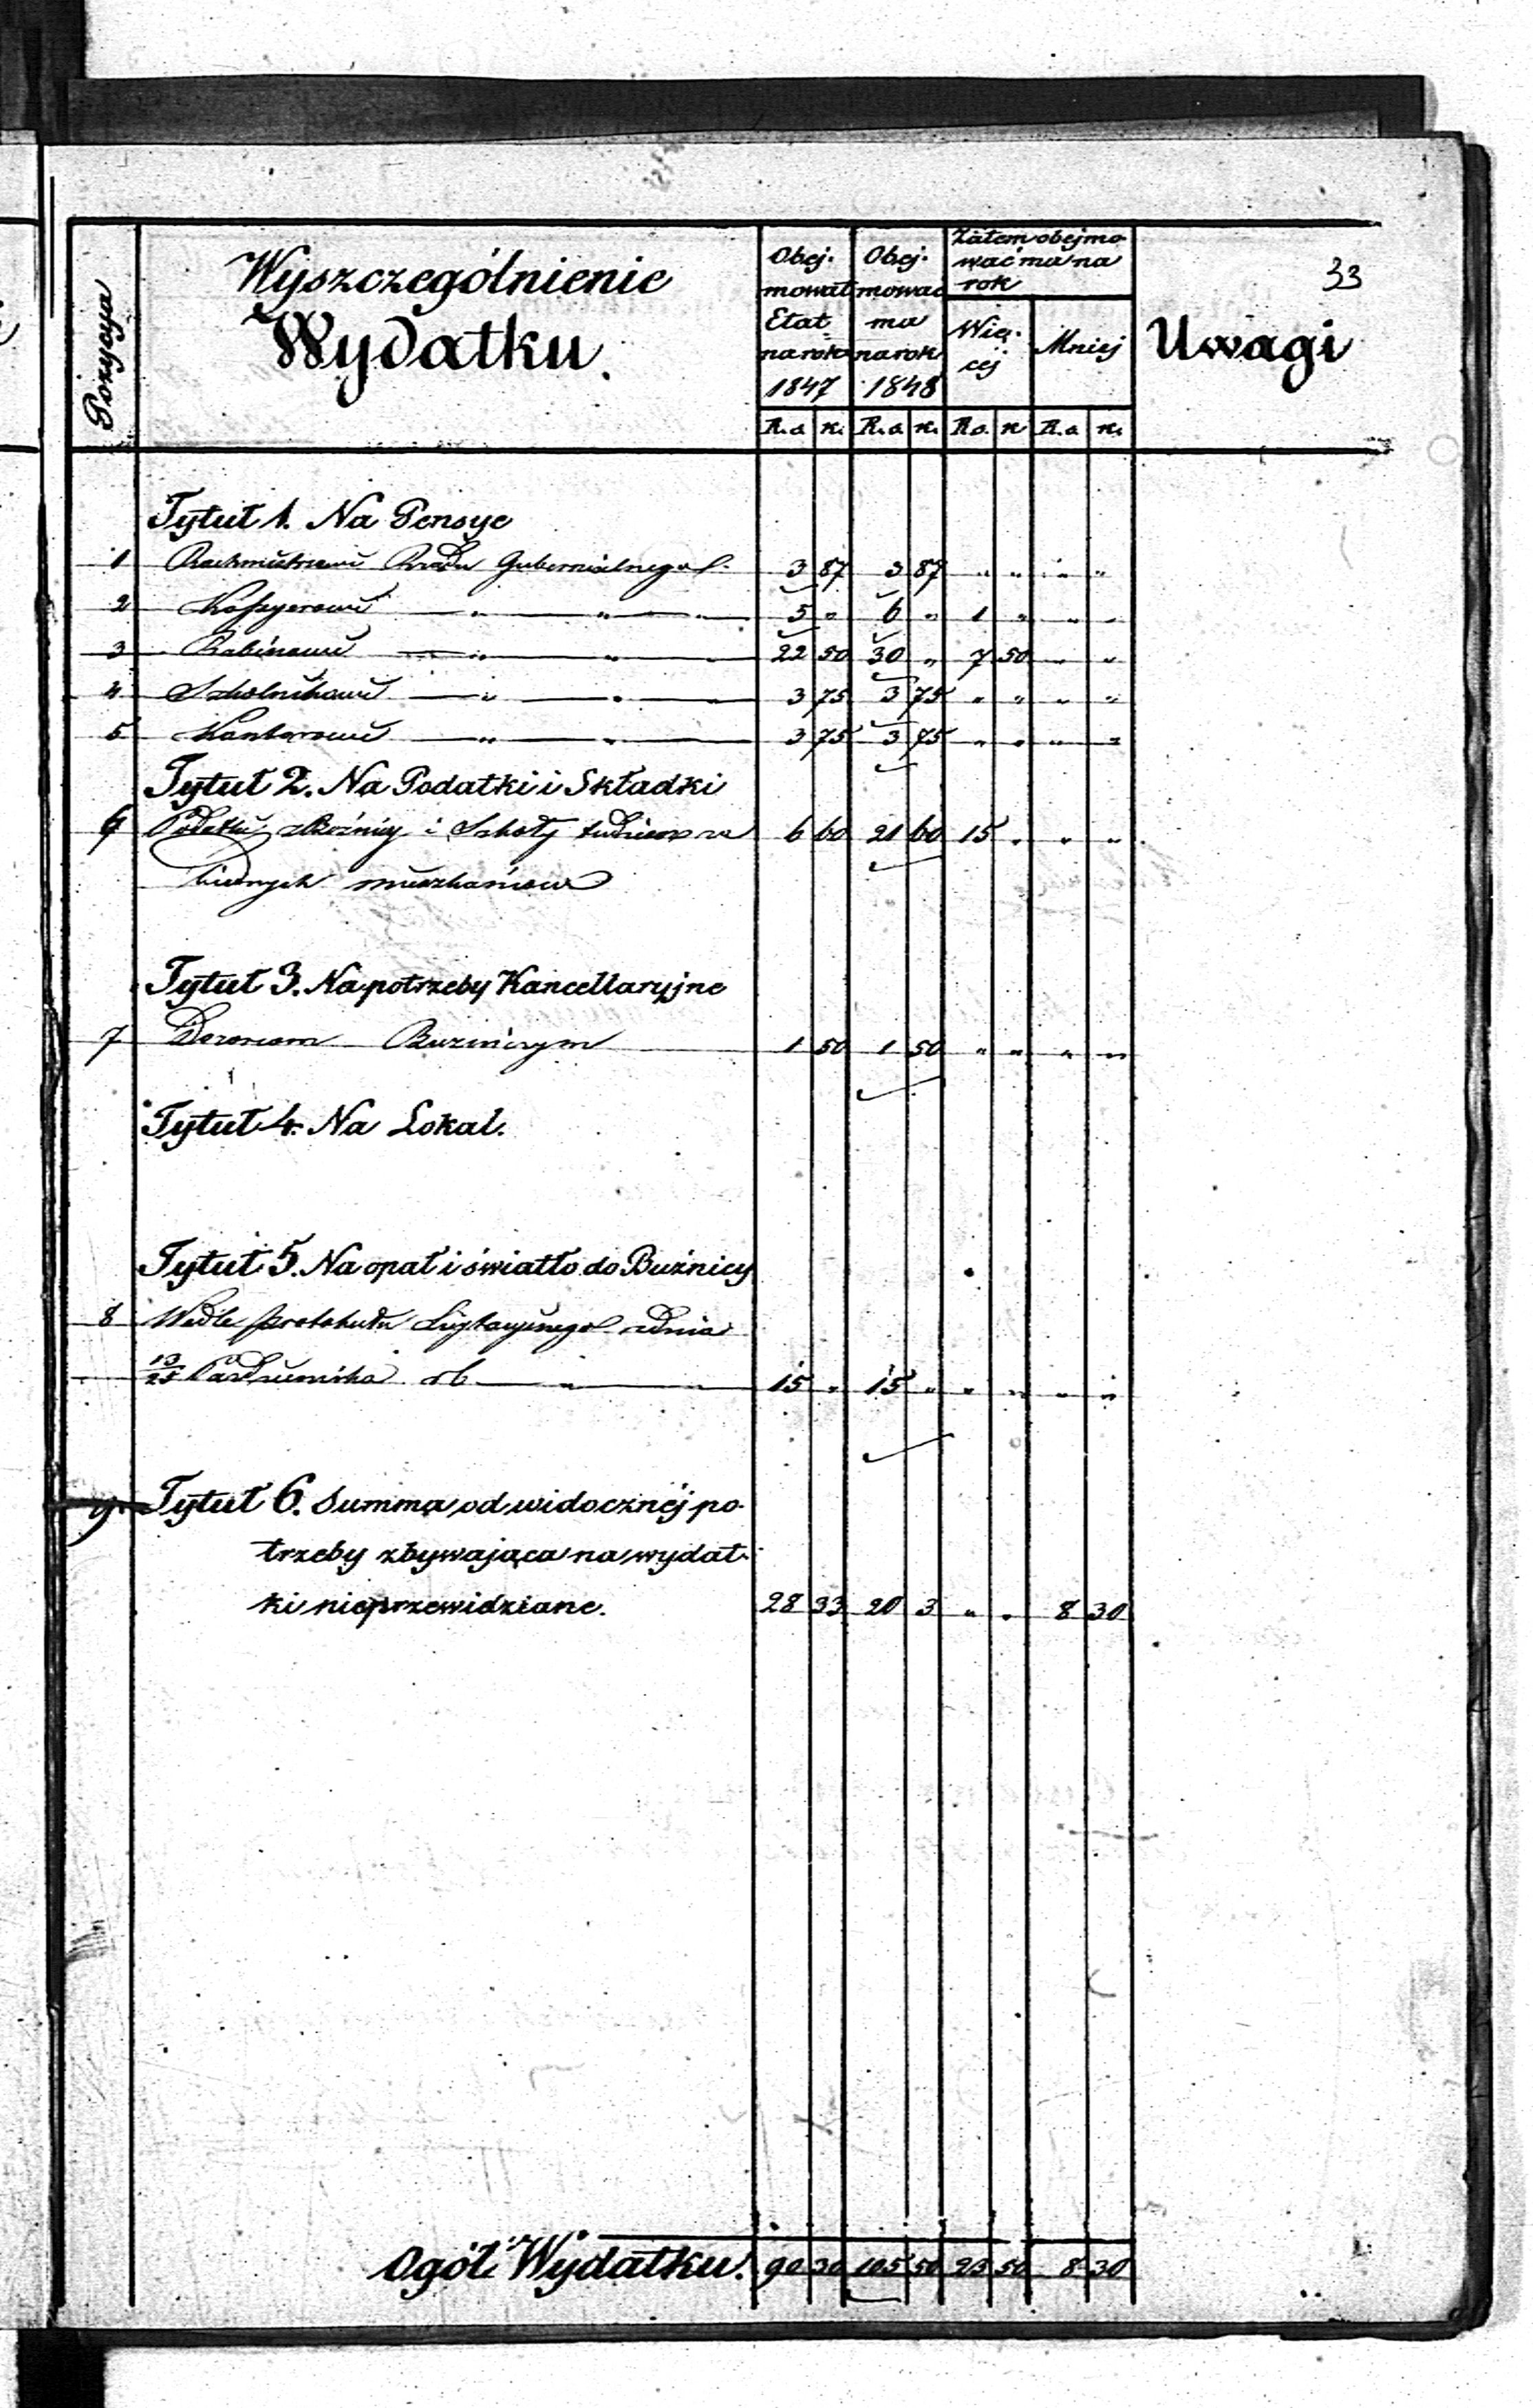 33
Pozycya
Wyszczególnienie
Wydatku.
Obej-
mował
Etat
na rok
1847
Obej-
mować
ma
na rok
1848
Zatem obejmo-
wać ma na
rok
Wię-
cej
Mniej
Uwagi
R.s. k. R.s. k. R.s. k. R.s. k.
Tytuł 1. Na Pensye
1 Rachmistrzowi Rządu Gubernialnego 3 87 3 87 " " " "
2 Kassyerowi " " 5 " 6 " 1 " " "
3 Rabinowi " " 22 50 30 " 7 50 " "
4 Szkolnikowi " " 3 75 3 75 " " " "
5 Kantorowi " " 3 75 3 75 " " " "
Tytuł 2. Na Podatki i Składki
6 i Szkoły tudzież za 6 60 21 60 15 " " "
biednych mieszkańców
Tytuł 3. Na potrzeby Kancellaryjne
7 Dozorcom Buźniczym 1 50 1 50 " " " "
Tytuł 4. Na Lokal.
Tytuł 5. Na opał i światło do Buźnicy
8 Wedle protokułu Licytacyjnego z dnia
13/25 Października rb " 15 " 15 " " " " "
9 Tytuł 6. Summa od widocznéj po-
trzeby zbywająca na wydat-
ki nieprzewidziane. 28 33 20 3 " " 8 30
Ogół Wydatku. 90 30 105 50 23 50 8 30